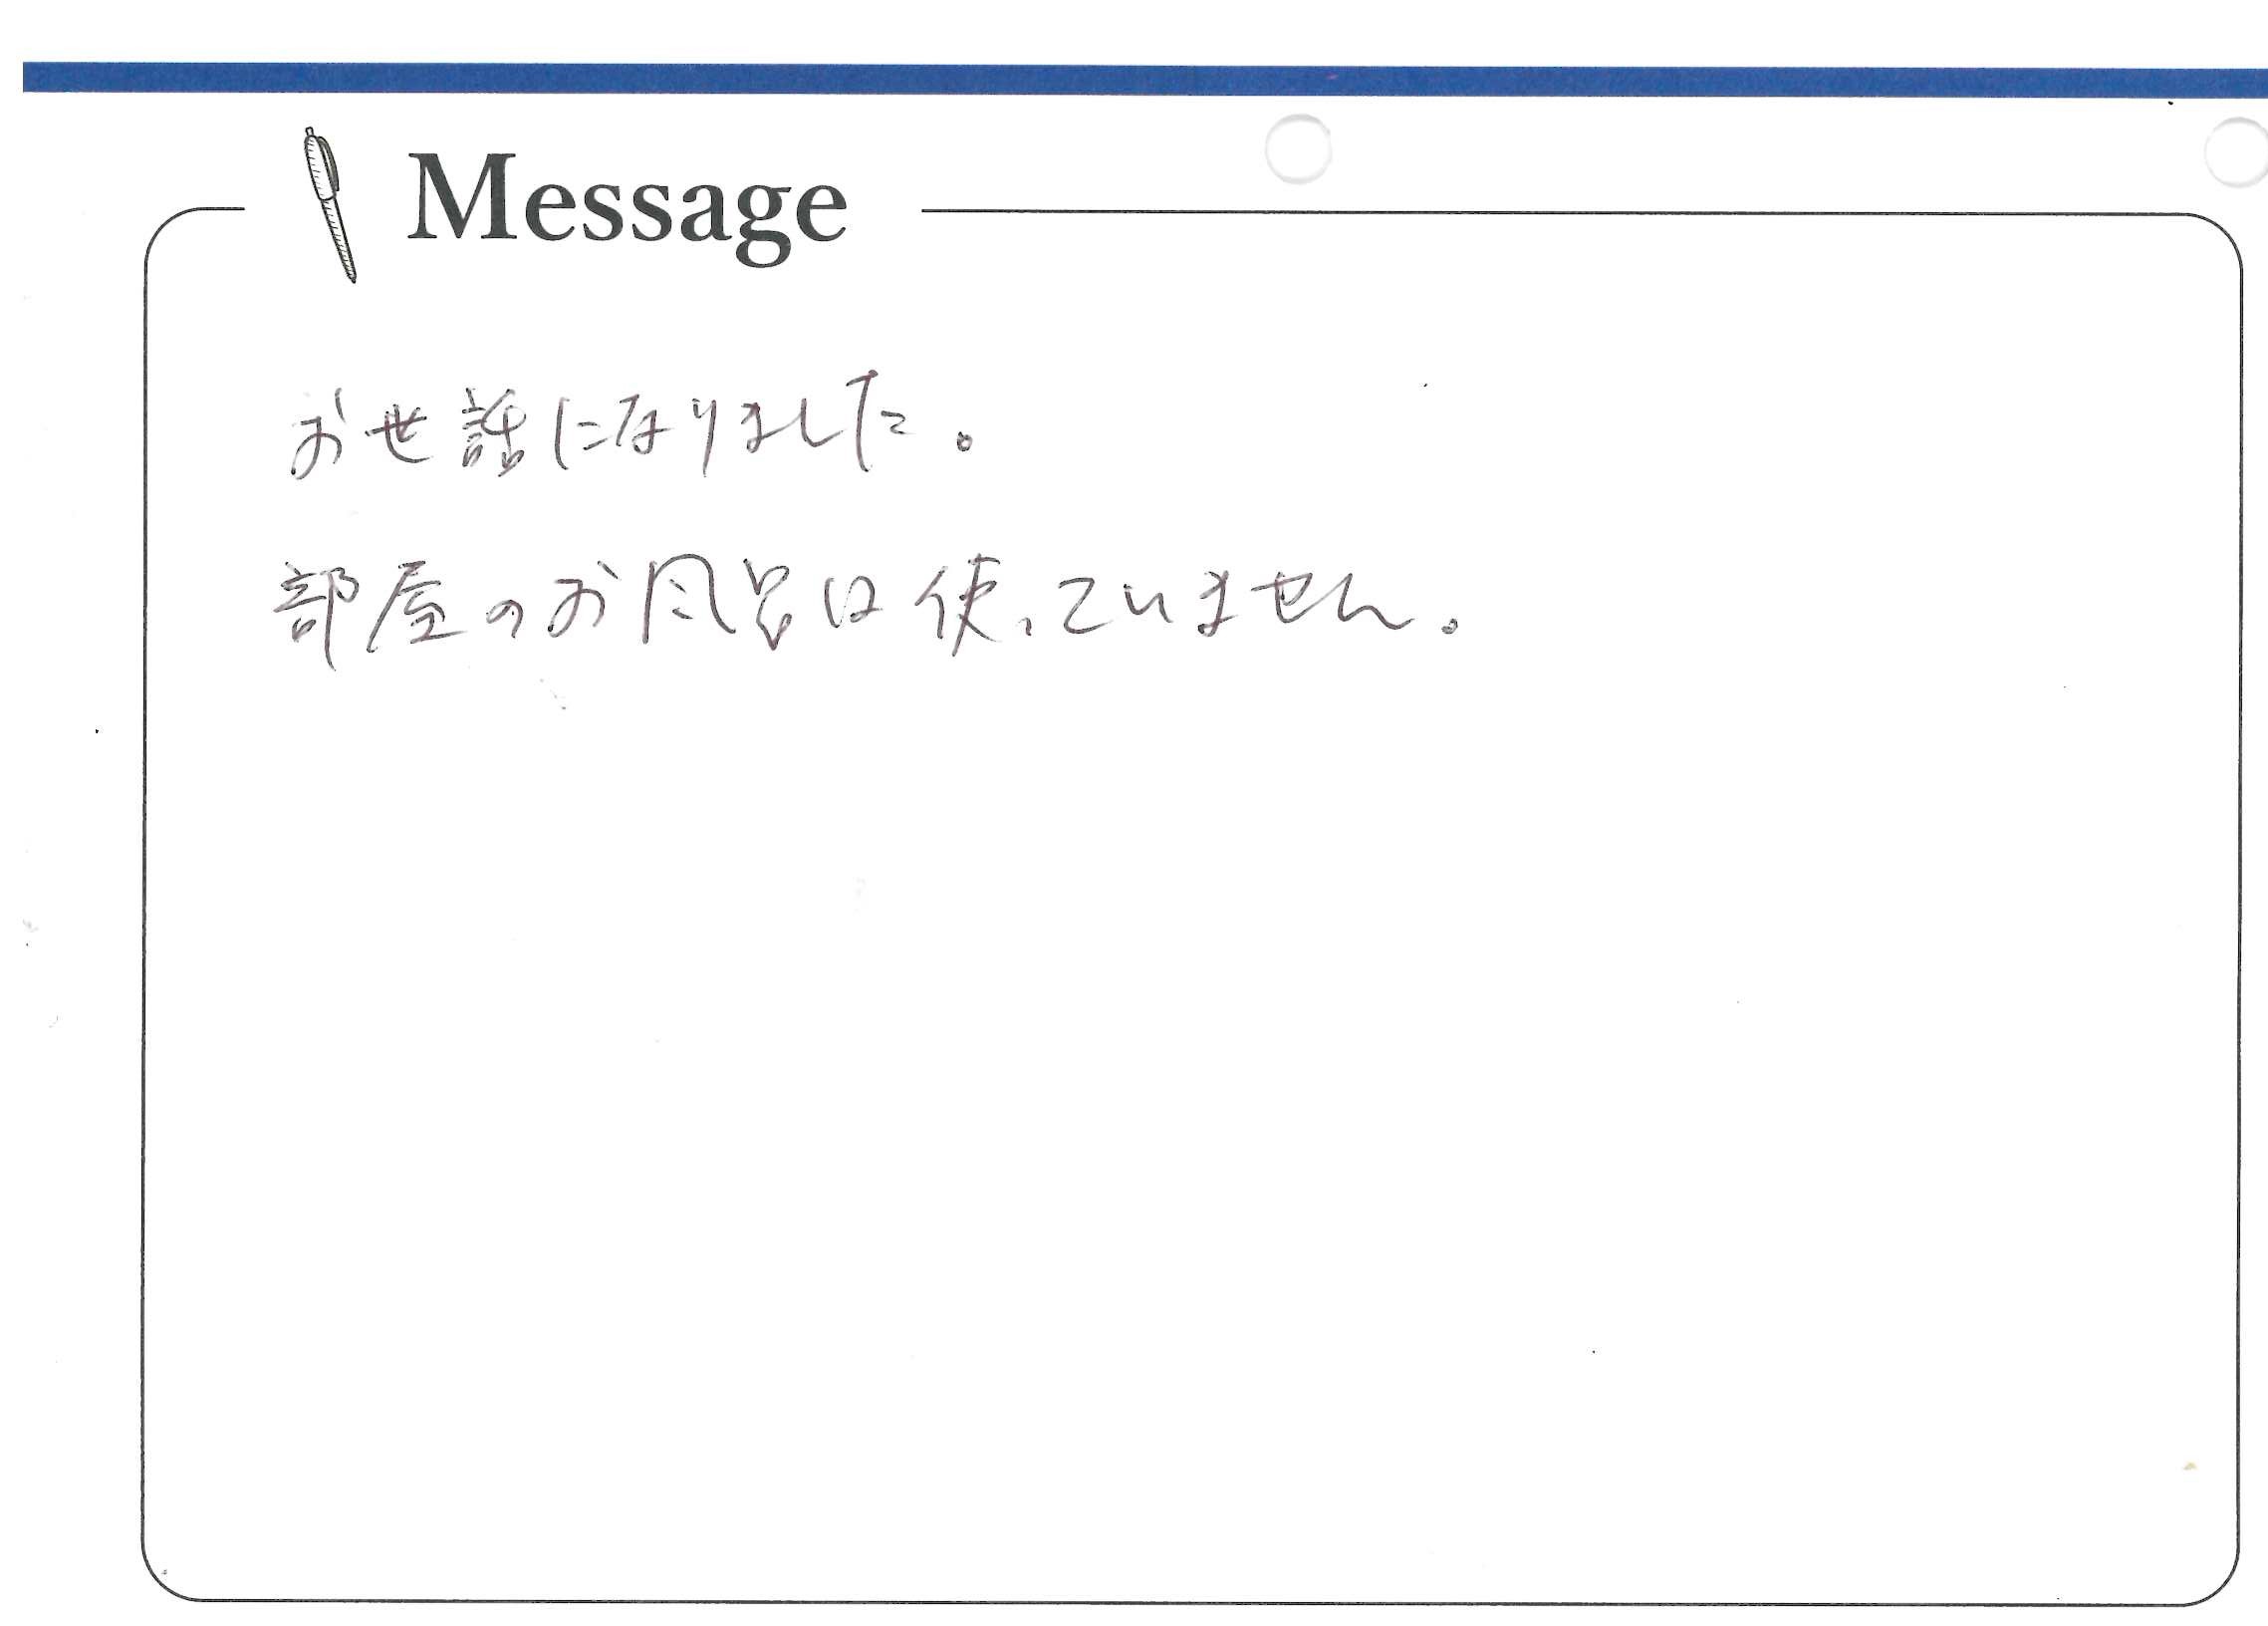 Message
お世話になりました。
部屋のお風呂は使っていません。